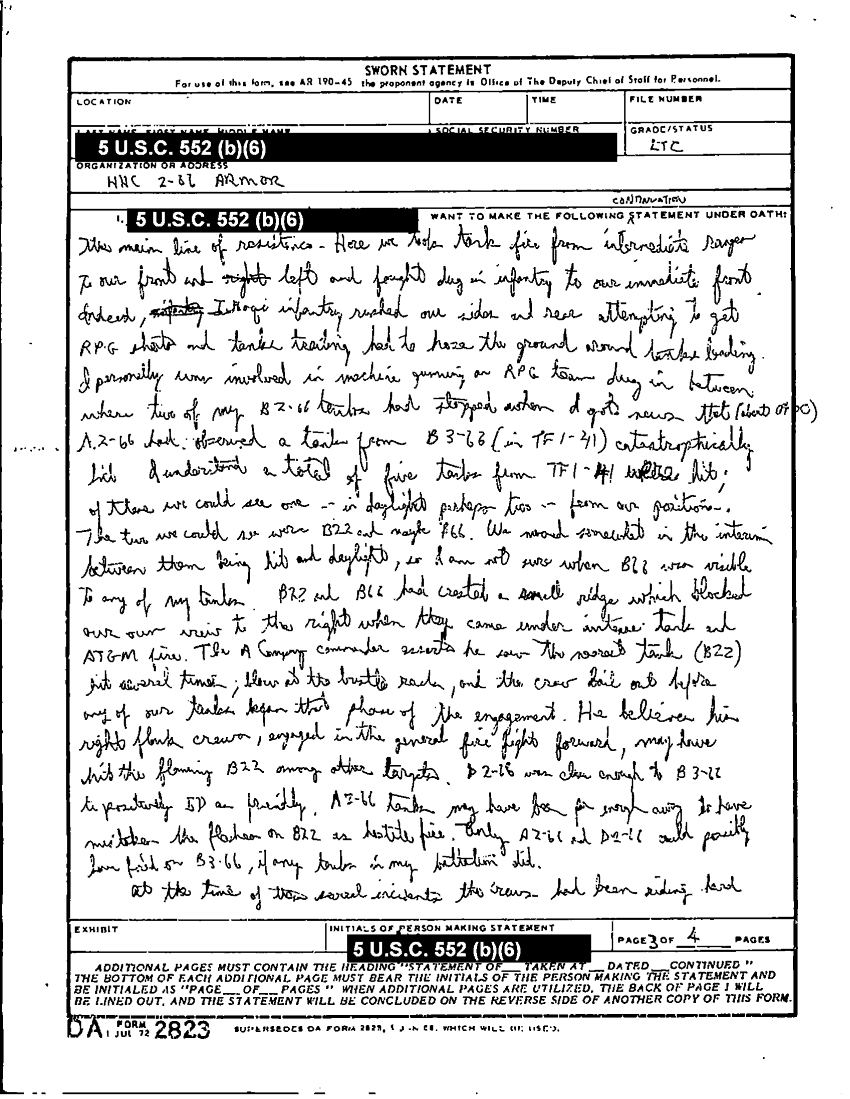 SWORN STATEMENT
For use of this form, see AR 190-45 the proponent agency is Office of The Deputy Chief of Staff for Personnel.
LOCATION
DATE
TIME
FILE NUMBER
LAST NAME, FIRST NAME, MIDDLE NAME
SOCIAL SECURITY NUMBER
GRADE/STATUS
5 U.S.C. 552 (b)(6)
LTC
ORGANIZATION OR ADDRESS
HHC 2-66 ARMOR
CONTINUATION
I, 5 U.S.C. 552 (b)(6) WANT TO MAKE THE FOLLOWING STATEMENT UNDER OATH:
the main line of resistence - Here we took tank fire from intermediate ranges
to our front and right left and fought dug in infantry to our immediate front.
Indeed, infantry Iraqi infantry rushed our sides and rear attempting to get
RPG shots and tanks trailing had to hose the ground around tanks leading.
I personally was involved in machine gunning an RPG team dug in between
where two of my B2-66 tanks had stopped when I got news that (about 0700)
A 2-66 had observed a tank from B 3-66 (in TF 1-41) catastrophically
hit. I understand a total of five tanks from TF 1-41 were hit;
of these we could see one -- in daylight perhaps two -- from our positions.
The two we could see were B22 and maybe B66. We moved somewhat in the interim
between them being hit and daylight, so I am not sure when B66 was visible
to any of my tanks. B22 and B66 had crested a small ridge which blocked
our own view to the right when they came under intense tank and
ATGM fire. The A Company commander asserts he saw the nearest tank (B22)
hit several times; blow at the bustle rack, and the crew bail out before
any of our tanks began that phase of the engagement. He believes his
right flank crews, engaged in the general fire fight forward, may have
hit the flaming B22 among other targets. D 2-66 was close enough to B 3-66
to positively ID as friendly. A 2-66 tanks may have been far enough away to have
mistaken the flashes on B22 as hostile fire. Only A2-66 and D2-66 could possibly
have fired on B3-66, if any tanks in my battalion did.
At the time of these several incidents the crews had been riding hard
EXHIBIT
INITIALS OF PERSON MAKING STATEMENT
5 U.S.C. 552 (b)(6)
PAGE 3 OF 4 PAGES
ADDITIONAL PAGES MUST CONTAIN THE HEADING "STATEMENT OF___ TAKEN AT___ DATED___ CONTINUED"
THE BOTTOM OF EACH ADDITIONAL PAGE MUST BEAR THE INITIALS OF THE PERSON MAKING THE STATEMENT AND
BE INITIALED AS "PAGE___ OF___ PAGES" WHEN ADDITIONAL PAGES ARE UTILIZED, THE BACK OF PAGE 1 WILL
BE LINED OUT, AND THE STATEMENT WILL BE CONCLUDED ON THE REVERSE SIDE OF ANOTHER COPY OF THIS FORM.
DA FORM 1 JUL 72 2823
SUPERSEDES DA FORM 2823, 1 JAN 68, WHICH WILL BE USED.